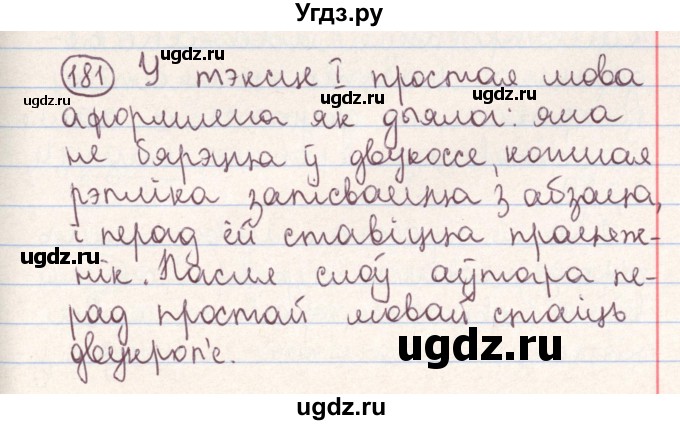 Угдз.ру
181 У тэксце I простая мова
аформлена як дыялог: яна
не бярэцца ў двукоссе, кожная
рэпліка запісваецца з абзаца,
і перад ёй ставіцца працяж-
нік. Пасля слоў аўтара пе-
рад простай мовай стаіць
двукроп'е.
ugdz.ru
ugdz.ru
ugdz.ru
ugdz.ru
ugdz.ru
ugdz.ru
ugdz.ru
ugdz.ru